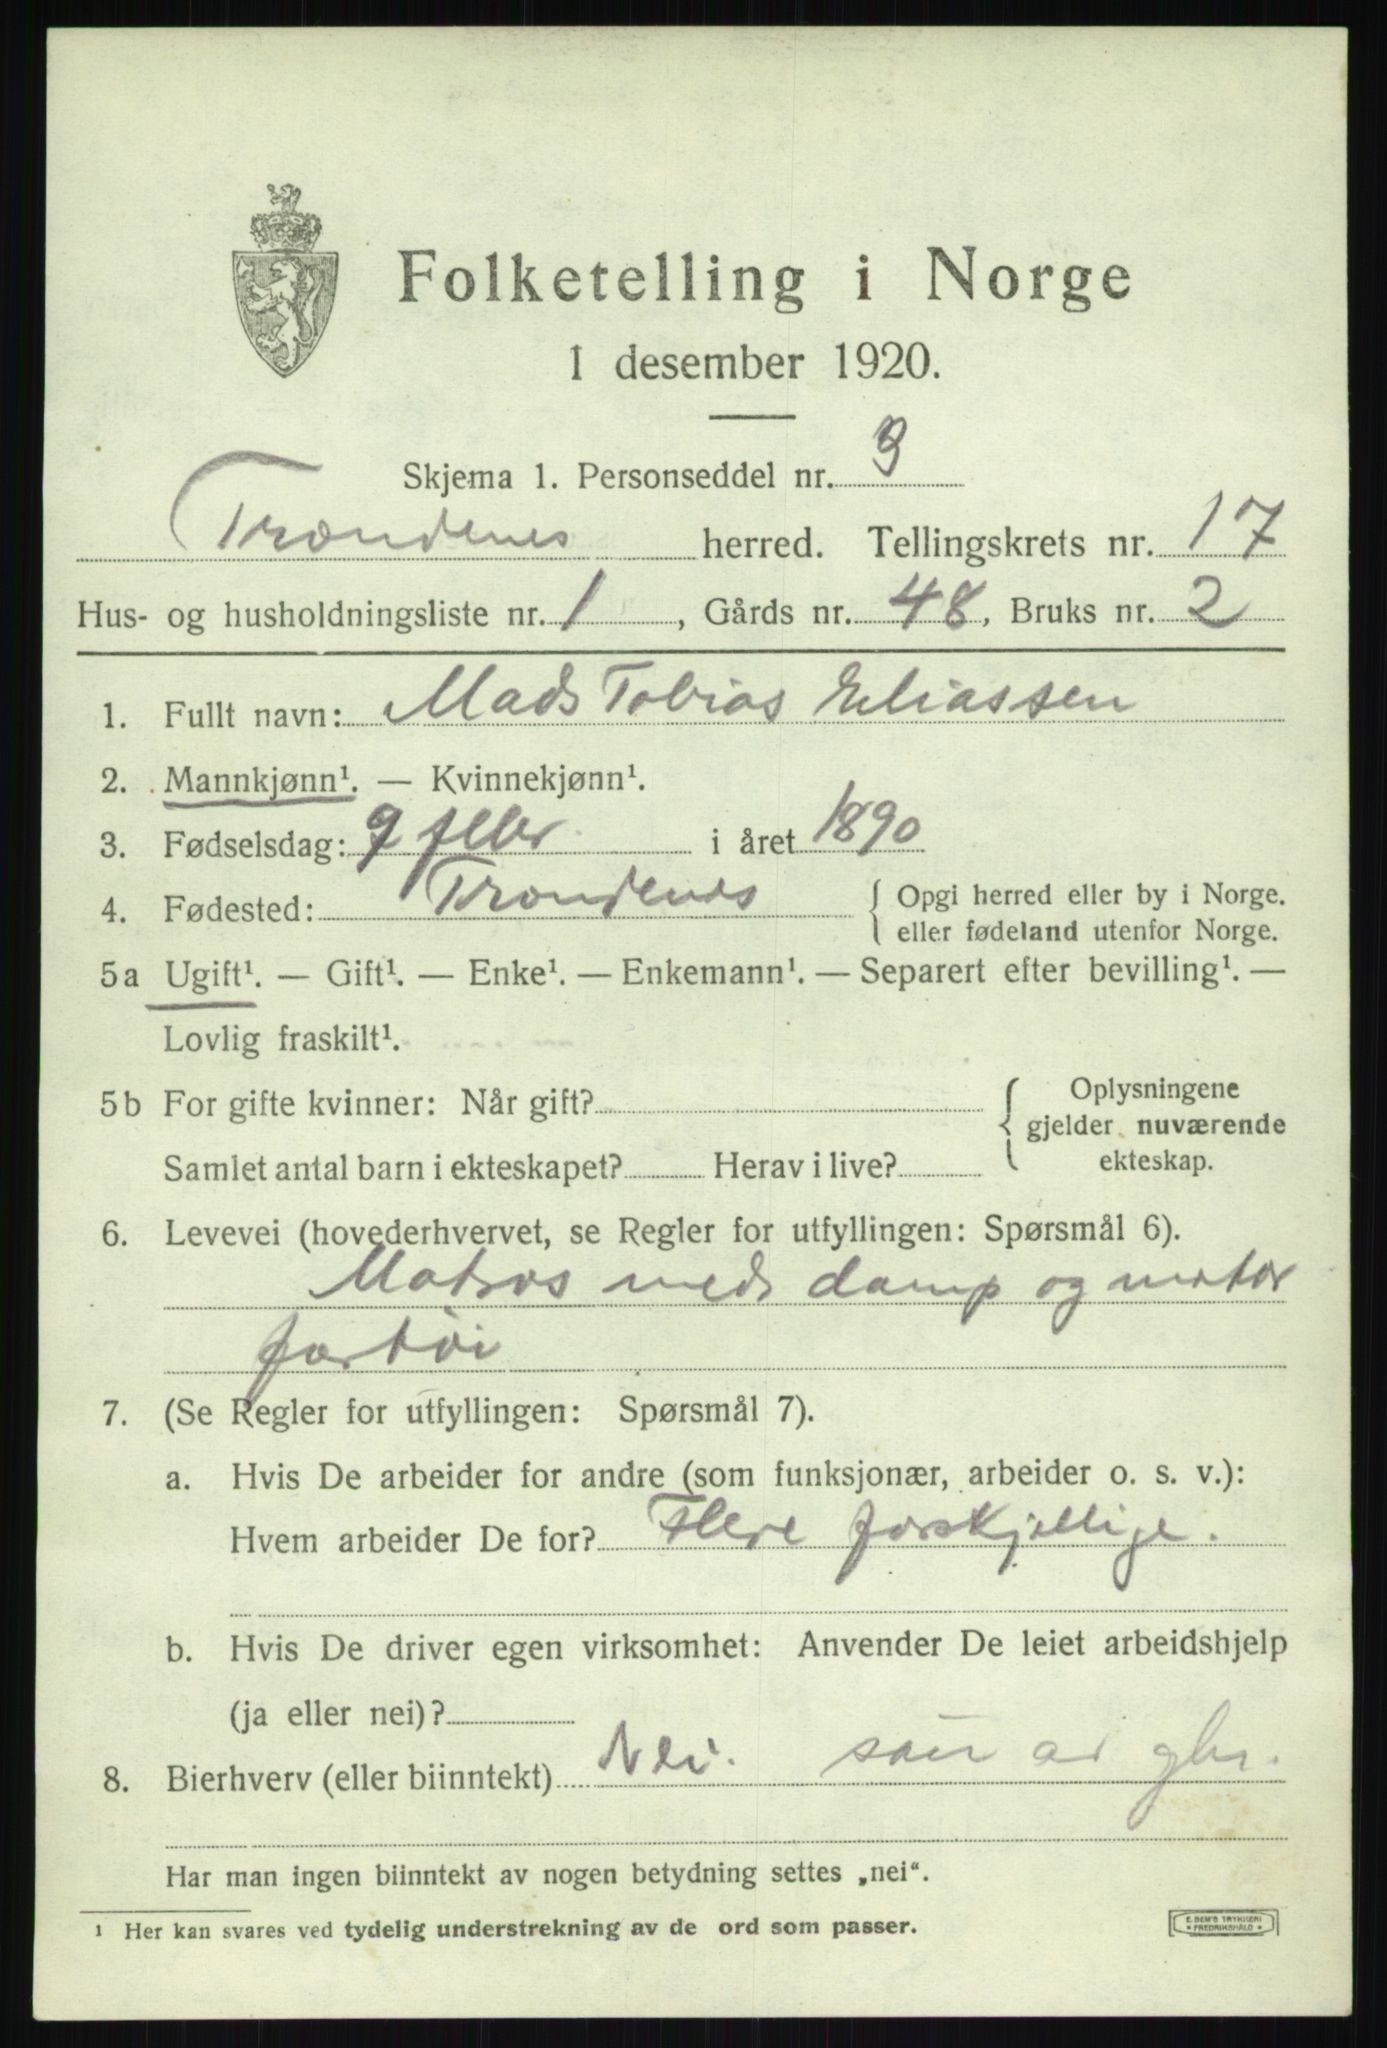 Folketelling i Norge
1 desember 1920.
Skjema 1. Personseddel nr. 3
Trondenes herred. Tellingskrets nr. 17
Hus- og husholdningsliste nr. 1, Gårds nr. 48, Bruks nr. 2
1. Fullt navn: Mads Tobias Eliassen
2. Mannkjønn¹. — Kvinnekjønn¹.
3. Fødselsdag: 9 i året 1890
4. Fødested: Trondenes { Opgi herred eller by i Norge.
eller fødeland utenfor Norge.
5a Ugift¹. — Gift¹. — Enke¹. — Enkemann¹. — Separert efter bevilling¹. —
Lovlig fraskilt¹.
5b For gifte kvinner: Når gift? { Oplysningene
gjelder nuværende
Samlet antal barn i ekteskapet? Herav i live? ekteskap.
6. Levevei (hovederhvervet, se Regler for utfyllingen: Spørsmål 6).
Matros med damp og motor
fartøi
7. (Se Regler for utfyllingen: Spørsmål 7).
a. Hvis De arbeider for andre (som funksjonær, arbeider o. s. v.):
Hvem arbeider De for? Flere forskjellige.
b. Hvis De driver egen virksomhet: Anvender De leiet arbeidshjelp
(ja eller nei)?
8. Bierhverv (eller biinntekt) Nei. søn av gbr.
Har man ingen biinntekt av nogen betydning settes „nei“.
¹ Her kan svares ved tydelig understrekning av de ord som passer.
E. SEM'S TRYKKERI
FREDRIKSHALD